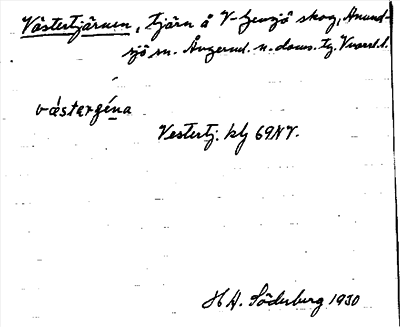 Västertjärnen, tjärn å V-Gensjö skog, Anund-
sjö sn. Ångerml. n. doms. tg. Vnorrl. l.
västergéna
Vestertj. kbl 69NV.
H A. Söderberg 1930